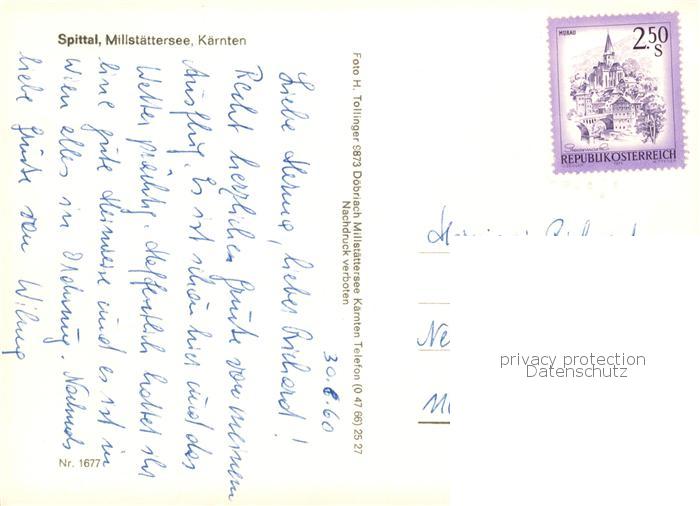 Spittal, Millstättersee, Kärnten
30.8.60
Liebe Herma, lieber Richard!
Recht herzlichen Grüße von meinem
Ausflug. Es ist schön hier und das
Wetter prächtig. Hoffentlich hattet ihr
eine gute Heimreise und es ist in
Wien alles in Ordnung. Nochmals
liebe Grüße von
Nr. 1677
Foto H. Tollinger 9873 Döbriach Millstättersee Kärnten Telefon (0 47 66) 25 27
Nachdruck verboten
MURAU
2.50
S
Steiermark
REPUBLIK ÖSTERREICH
Ne
privacy protection
Datenschutz